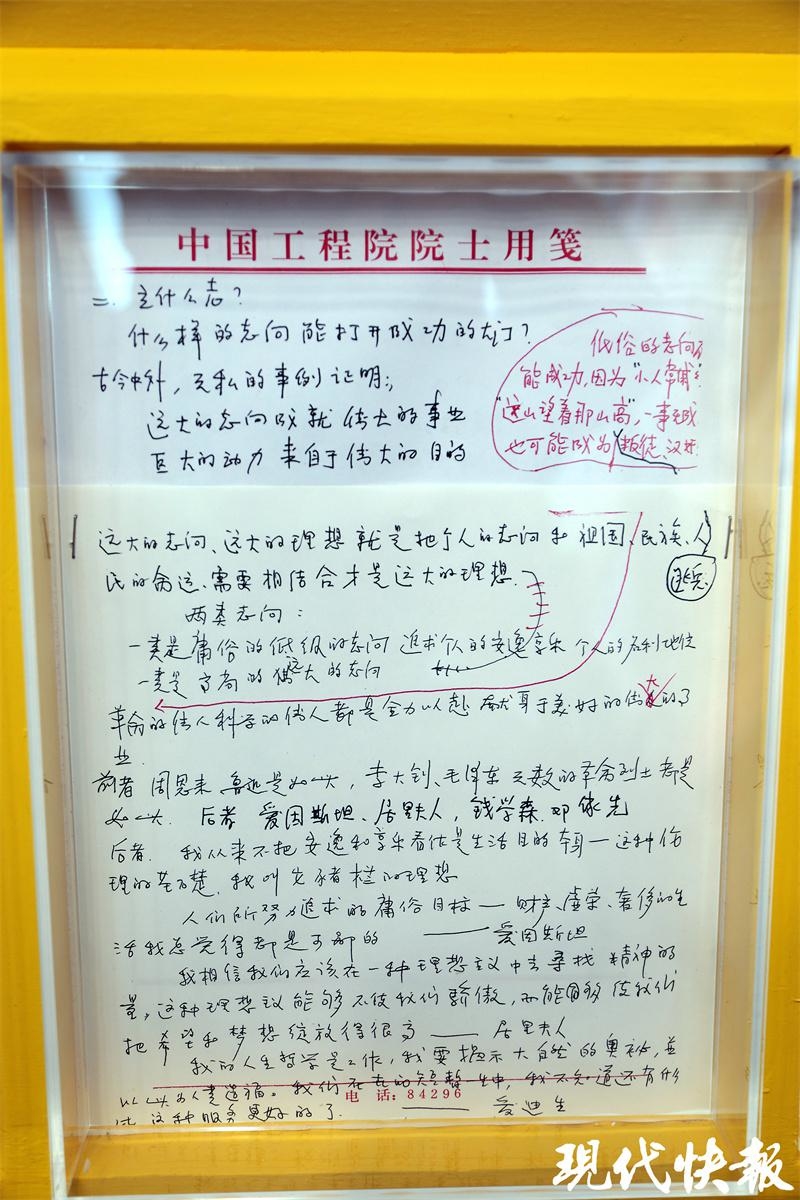 中国工程院院士用笺
二. 立什么志？
什么样的志向能打开成功的大门？
古今中外，无私的事例证明:
远大的志向成就伟大的事业
巨大的动力来自于伟大的目的
低俗的志向不
能成功，因为“小人常
“这山望着那山高”，一事无成
也可能成为叛徒、汉奸
远大的志向、远大的理想就是把个人的志向和祖国、民族、人
民的命运、需要相结合才是远大的理想.
两类志向：
一类是庸俗的低级的志向 追求个人的安逸享乐 个人的名利地位
一类是高尚的 远大的志向
革命的伟人科学的伟人都是全力以赴 献身于美好的伟大的事
业
前者 周恩来 鲁迅是如此，李大钊、毛泽东 无数的革命烈士都是
如此. 后者 爱因斯坦、居里夫人，钱学森.邓稼先
后者. 我从来不把安逸和享乐看作是生活目的本身—这种伦
理的基础，我叫它猪栏的理想
人们所努力追求的庸俗目标——财产、虚荣、奢侈的生
活我总觉得都是可鄙的 ——爱因斯坦
我相信我们应该在一种理想主义中去寻找精神的
量，这种理想主义能够不使我们骄傲，而能够使我们
把希望和梦想绽放得很高——居里夫人
我的人生哲学是工作，我要揭示大自然的奥秘，并
以此为人类造福。我们在世的短暂一生中，我不知道还有什
这种服务更好的了. ——爱迪生
电 话：84296
现代快报